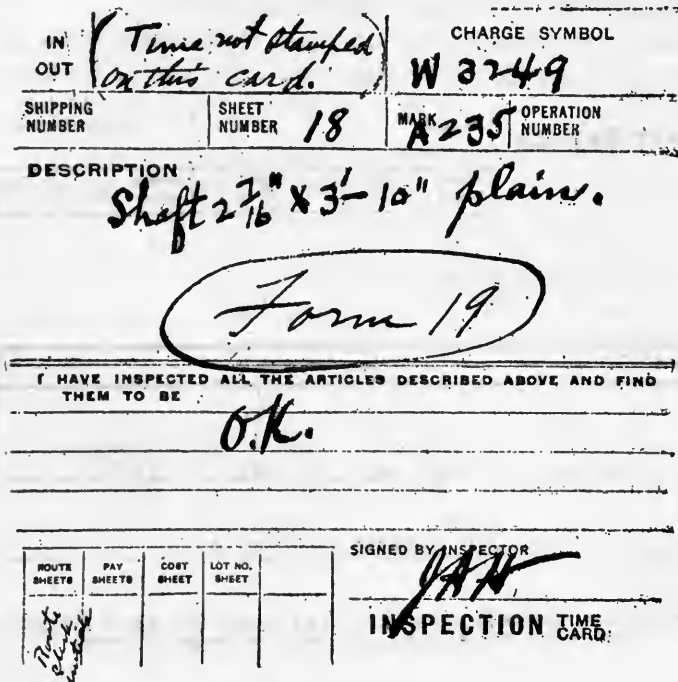 IN OUT (Time not stamped on this card.)
CHARGE SYMBOL
W 3249
SHIPPING NUMBER
SHEET NUMBER 18
MARK A235
OPERATION NUMBER
DESCRIPTION
Shaft 2 7/16" x 3'-10" plain.
Form 19
I HAVE INSPECTED ALL THE ARTICLES DESCRIBED ABOVE AND FIND
THEM TO BE
O.K.
ROUTE SHEETS
PAY SHEETS
COST SHEET
LOT NO. SHEET
Route clerk initials
SIGNED BY INSPECTOR
JAH
INSPECTION TIME CARD